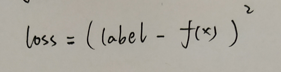 loss = (label - f(x))²